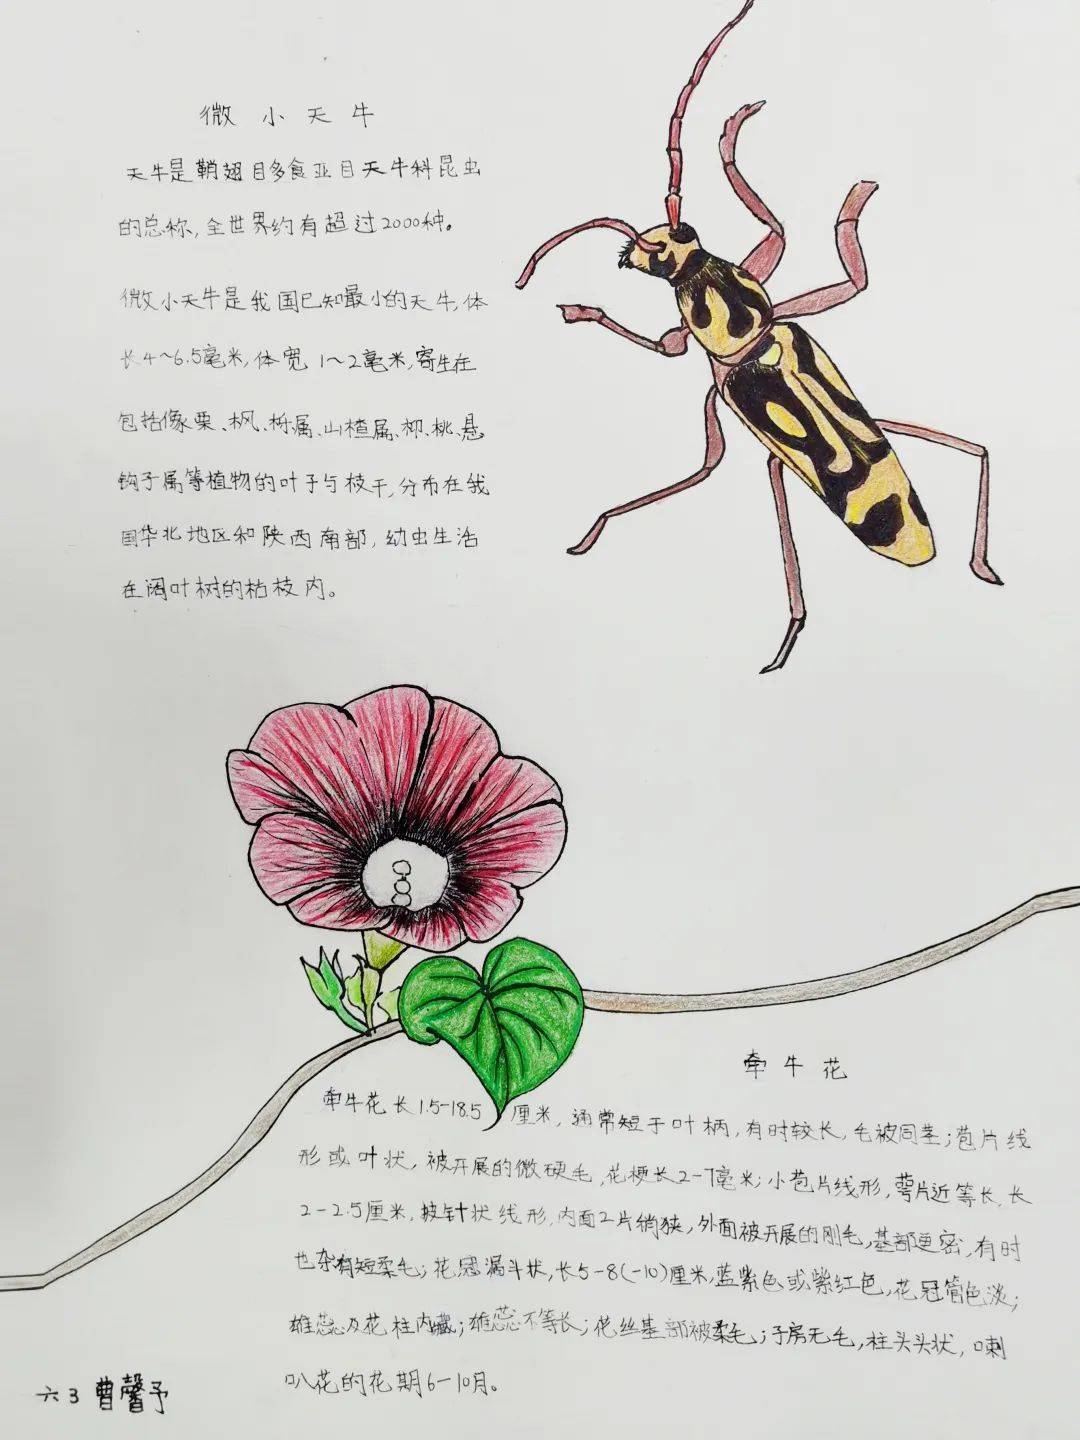 微小天牛
天牛是鞘翅目多食亚目天牛科昆虫
的总称,全世界约有超过2000种。
微小天牛是我国已知最小的天牛,体
长4~6.5毫米,体宽1~2毫米,寄生在
包括像栗、枫、栎属、山楂属、柳、桃、悬
钩子属等植物的叶子与枝干,分布在我
国华北地区和陕西南部,幼虫生活
在阔叶树的枯枝内。
牵牛花
牵牛花长1.5-18.5厘米,通常短于叶柄,有时较长,毛被同茎;苞片线
形或叶状,被开展的微硬毛,花梗长2-7毫米;小苞片线形,萼片近等长,长
2-2.5厘米,披针状线形,内面2片稍狭,外面被开展的刚毛,基部更密,有时
也杂有短柔毛;花冠漏斗状,长5-8(-10)厘米,蓝紫色或紫红色,花冠筒色淡;
雄蕊及花柱内藏;雄蕊不等长;花丝基部被柔毛;子房无毛,柱头头状,喇
叭花的花期6-10月。
六3曹馨予